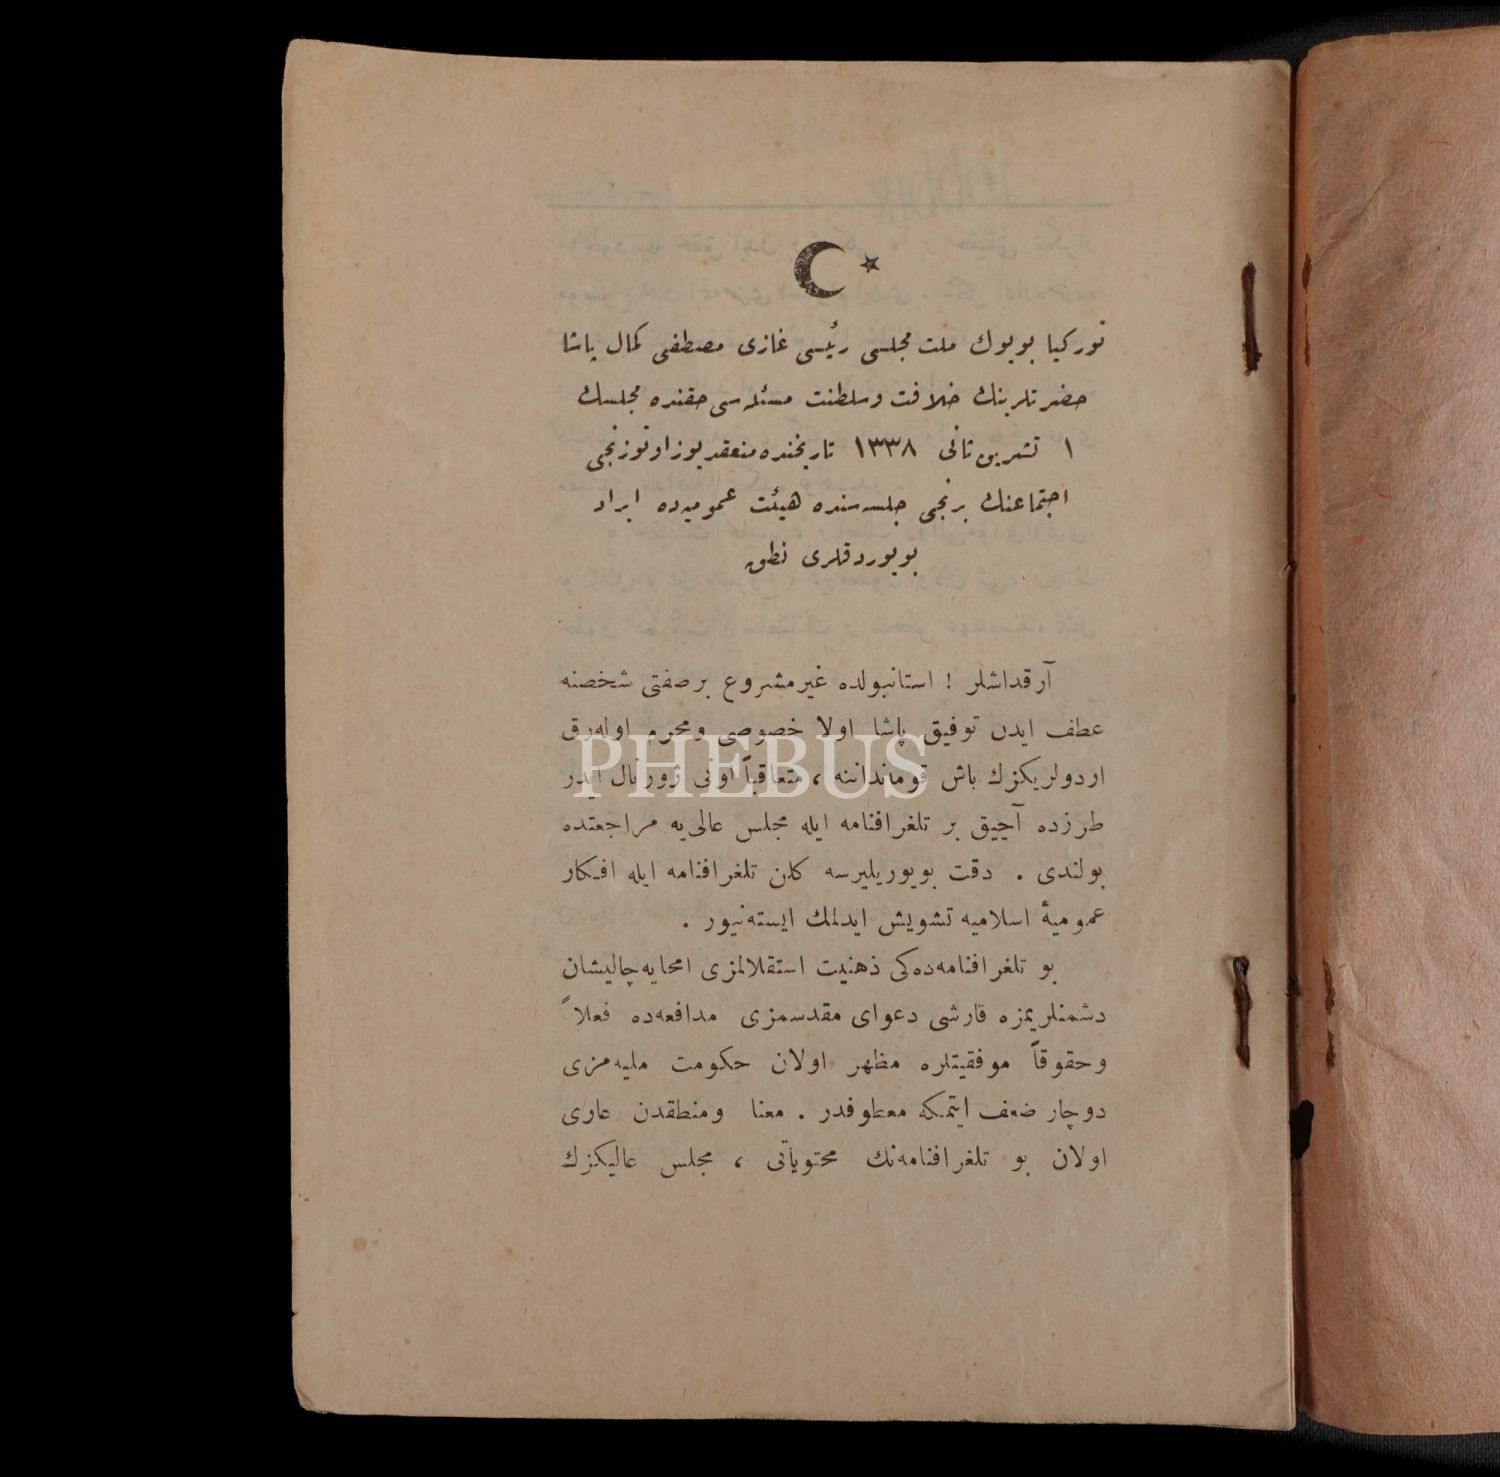 توركيا بويوك ملت مجلسی رئيسی غازی مصطفی كمال پاشا
حضرتلرينك خلافت وسلطنت مسئله‌سی حقنده مجلسك
١ تشرين ثانی ١٣٣٨ تاريخنده منعقد يوز اوتوزنجی
اجتماعنك برنجی جلسه‌سنده هيئت عموميه‌ده ايراد
بويوردقلری نطق
آرقداشلر ! استانبولده غيرمشروع برصفتی شخصنه
عطف ايدن توفيق پاشا اولا خصوصی ومحرم اوله‌رق
اردولريكزك باش قومنداننه ، متعاقباً اونی ژورنال ايدر
طرزده آچيق بر تلغرافنامه ايله مجلس عالی‌يه مراجعتده
بولندی . دقت بويوريليرسه كلن تلغرافنامه ايله افكار
عموميهٔ اسلاميه تشويش ايدلمك ايسته‌نيور .
بو تلغرافنامه‌ده‌كی ذهنيت استقلالمزی امحايه چاليشان
دشمنلريمزه قارشی دعوای مقدسمزی مدافعه‌ده فعلاً
وحقوقاً موفقيتلره مظهر اولان حكومت مليه‌مزی
دوچار ضعف ايتمكه معطوفدر . معنا ومنطقدن عاری
اولان بو تلغرافنامه‌نك محتوياتی ، مجلس عاليكزك
PHEBUS